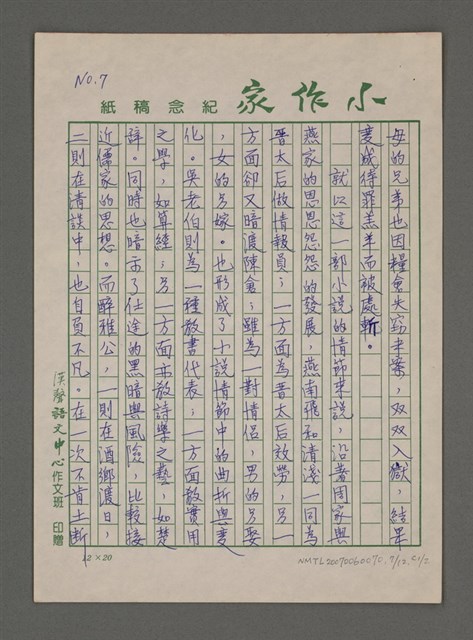 No.7
小作家 紀念稿紙
母的兄弟也因糧倉失竊未案，双双入獄，結果
變成待罪羔羊而被處斬。
就以這一部小說的情節來說，沿著周家與
燕家的恩恩怨怨的發展，燕南飛和清淺一同為
晋太后做情報員；一方面為晋太后效勞，另一
方面卻又暗渡陳倉；雖為一對情侶，男的另娶
，女的另嫁。也形成了小說情節中的曲折與變
化。吳老伯則為一種放書代表；一方面放實用
之學，如算經；另一方面亦放詩學之藝，如楚
辞。同時也暗示了仕途的黑暗與風險，比較接
近儒家的思想。而醉雅公，一則在酒鄉渡日，
二則在清談中，也自負不凡。在一次不肯土斷
漢聲語文中心作文班 印贈
12×20
NMTL20070060070